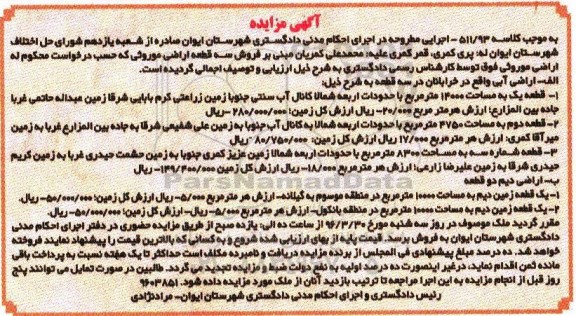 آگهی مزایده
به موجب کلاسه ۵۱۱/۹۳ - اجرایی مطروحه در اجرای احکام مدنی دادگستری شهرستان ایوان صادره از شعبه یازدهم شورای حل اختلاف
شهرستان ایوان له: پری کمری، قمر کمری علیه: محمدعلی کمریان مبنی بر فروش سه قطعه اراضی موروثی که حسب درخواست محکوم له
اراضی موروثی فوق توسط کارشناس رسمی دادگستری به شرح ذیل ارزیابی و توصیف اجمالی گردیده است.
الف- اراضی آبی واقع در خرابانان در سه قطعه به شرح ذیل:
۱- قطعه یک به مساحت ۱۴۰۰۰ مترمربع با حدودات اربعه شمالا کانال آب سنتی جنوبا زمین زراعتی کرم بابایی شرقا زمین عبداله حاتمی غربا
جاده بین المزارع: ارزش هرمتر مربع ۲۰/۰۰۰- ریال ارزش کل زمین: ۲۸۰/۰۰۰/۰۰۰- ریال
۲- قطعه دوم به مساحت ۴۷۵۰ مترمربع با حدودات اربعه شمالا به کانال آب جنوبا به زمین علی شفیعی شرقا به جاده بین المزارع غربا به زمین
میرآقا کمری: ارزش هر مترمربع ۱۷/۰۰۰ ریال ارزش کل زمین: ۸۰/۷۵۰/۰۰۰- ریال
۳- قطعه شماره سه به مساحت ۸۳۰۰ مترمربع با حدودات اربعه شمالا زمین عزیز کمری جنوبا به زمین حشمت حیدری غربا به زمین کریم
حیدری شرقا به زمین علیرضا زارعی: ارزش هر مترمربع ۱۸/۰۰۰- ریال ارزش کل زمین ۱۴۷/۴۰۰/۰۰۰- ریال.
ب- اراضی دیم دو قطعه
۱- یک قطعه زمین دیم به مساحت ۱۰۰۰۰ مترمربع در منطقه موسوم به گیلانه- ارزش هر مترمربع ۵/۰۰۰- ریال ارزش کل زمین؛ ۵۰/۰۰۰/۰۰۰- ریال.
۲- یک قطعه زمین دیم به مساحت ۱۰۰۰۰ مترمربع در منطقه بانکول- ارزش هر مترمربع ۵/۰۰۰- ریال- ارزش کل زمین: ۵۰/۰۰۰/۰۰۰- ریال.
مقرر گردید ملک موصوف در روز سه شنبه مورخ ۹۶/۳/۳۰ از ساعت ده الی: یازده صبح از طریق مزایده حضوری در دفتر اجرای احکام مدنی
دادگستری شهرستان ایوان به فروش برسد. قیمت پایه از بهای ارزیابی شده شروع و به کسانی که بالاترین قیمت را پیشنهاد نمایند فروخته
خواهد شد. ده درصد مبلغ پیشنهادی فی المجلس از برنده مزایده دریافت و نامبرده مکلف است حداکثر تا یک هفته نسبت به پرداخت باقی
مانده ثمن اقدام نماید، درغیر اینصورت ده درصد اولیه به نفع دولت ضبط و مزایده تجدید می گردد. طالبین در صورت تمایل می توانند پنج
روز قبل از انجام مزایده به این اجرا مراجعه تا ترتیب بازدید آنان از ملک مورد مزایده داده شود. ۹۶۰۳۸۵۱
رئیس دادگستری و اجرای احکام مدنی دادگستری شهرستان ایوان- مرادنژادی
ParsNamadData